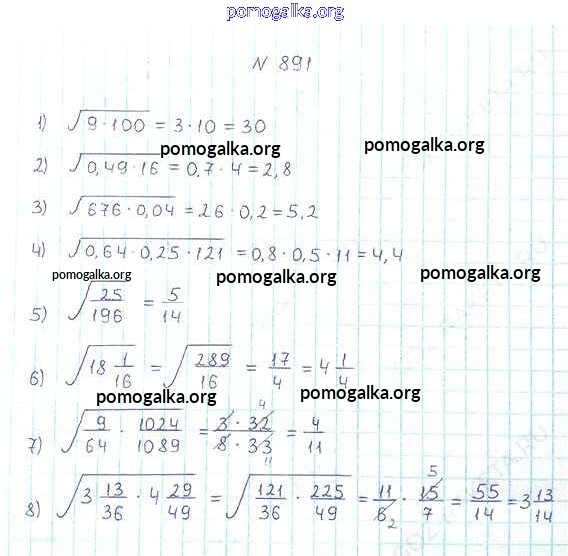 pomogalka.org
N 891
1) √(9 · 100) = 3 · 10 = 30
pomogalka.org pomogalka.org
2) √(0,49 · 16) = 0,7 · 4 = 2,8
3) √(676 · 0,04) = 26 · 0,2 = 5,2
4) √(0,64 · 0,25 · 121) = 0,8 · 0,5 · 11 = 4,4
pomogalka.org pomogalka.org pomogalka.org
5) √(25/196) = 5/14
6) √(18 1/16) = √(289/16) = 17/4 = 4 1/4
pomogalka.org pomogalka.org
7) √(9/64 · 1024/1089) = (3 · 32)/(8 · 33) = 4/11
4
11
8) √(3 13/36 · 4 29/49) = √(121/36 · 225/49) = 11/6 · 15/7 = 55/14 = 3 13/14
5
2